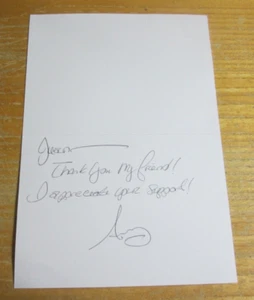 Thank you my friend!
I appreciate your support!